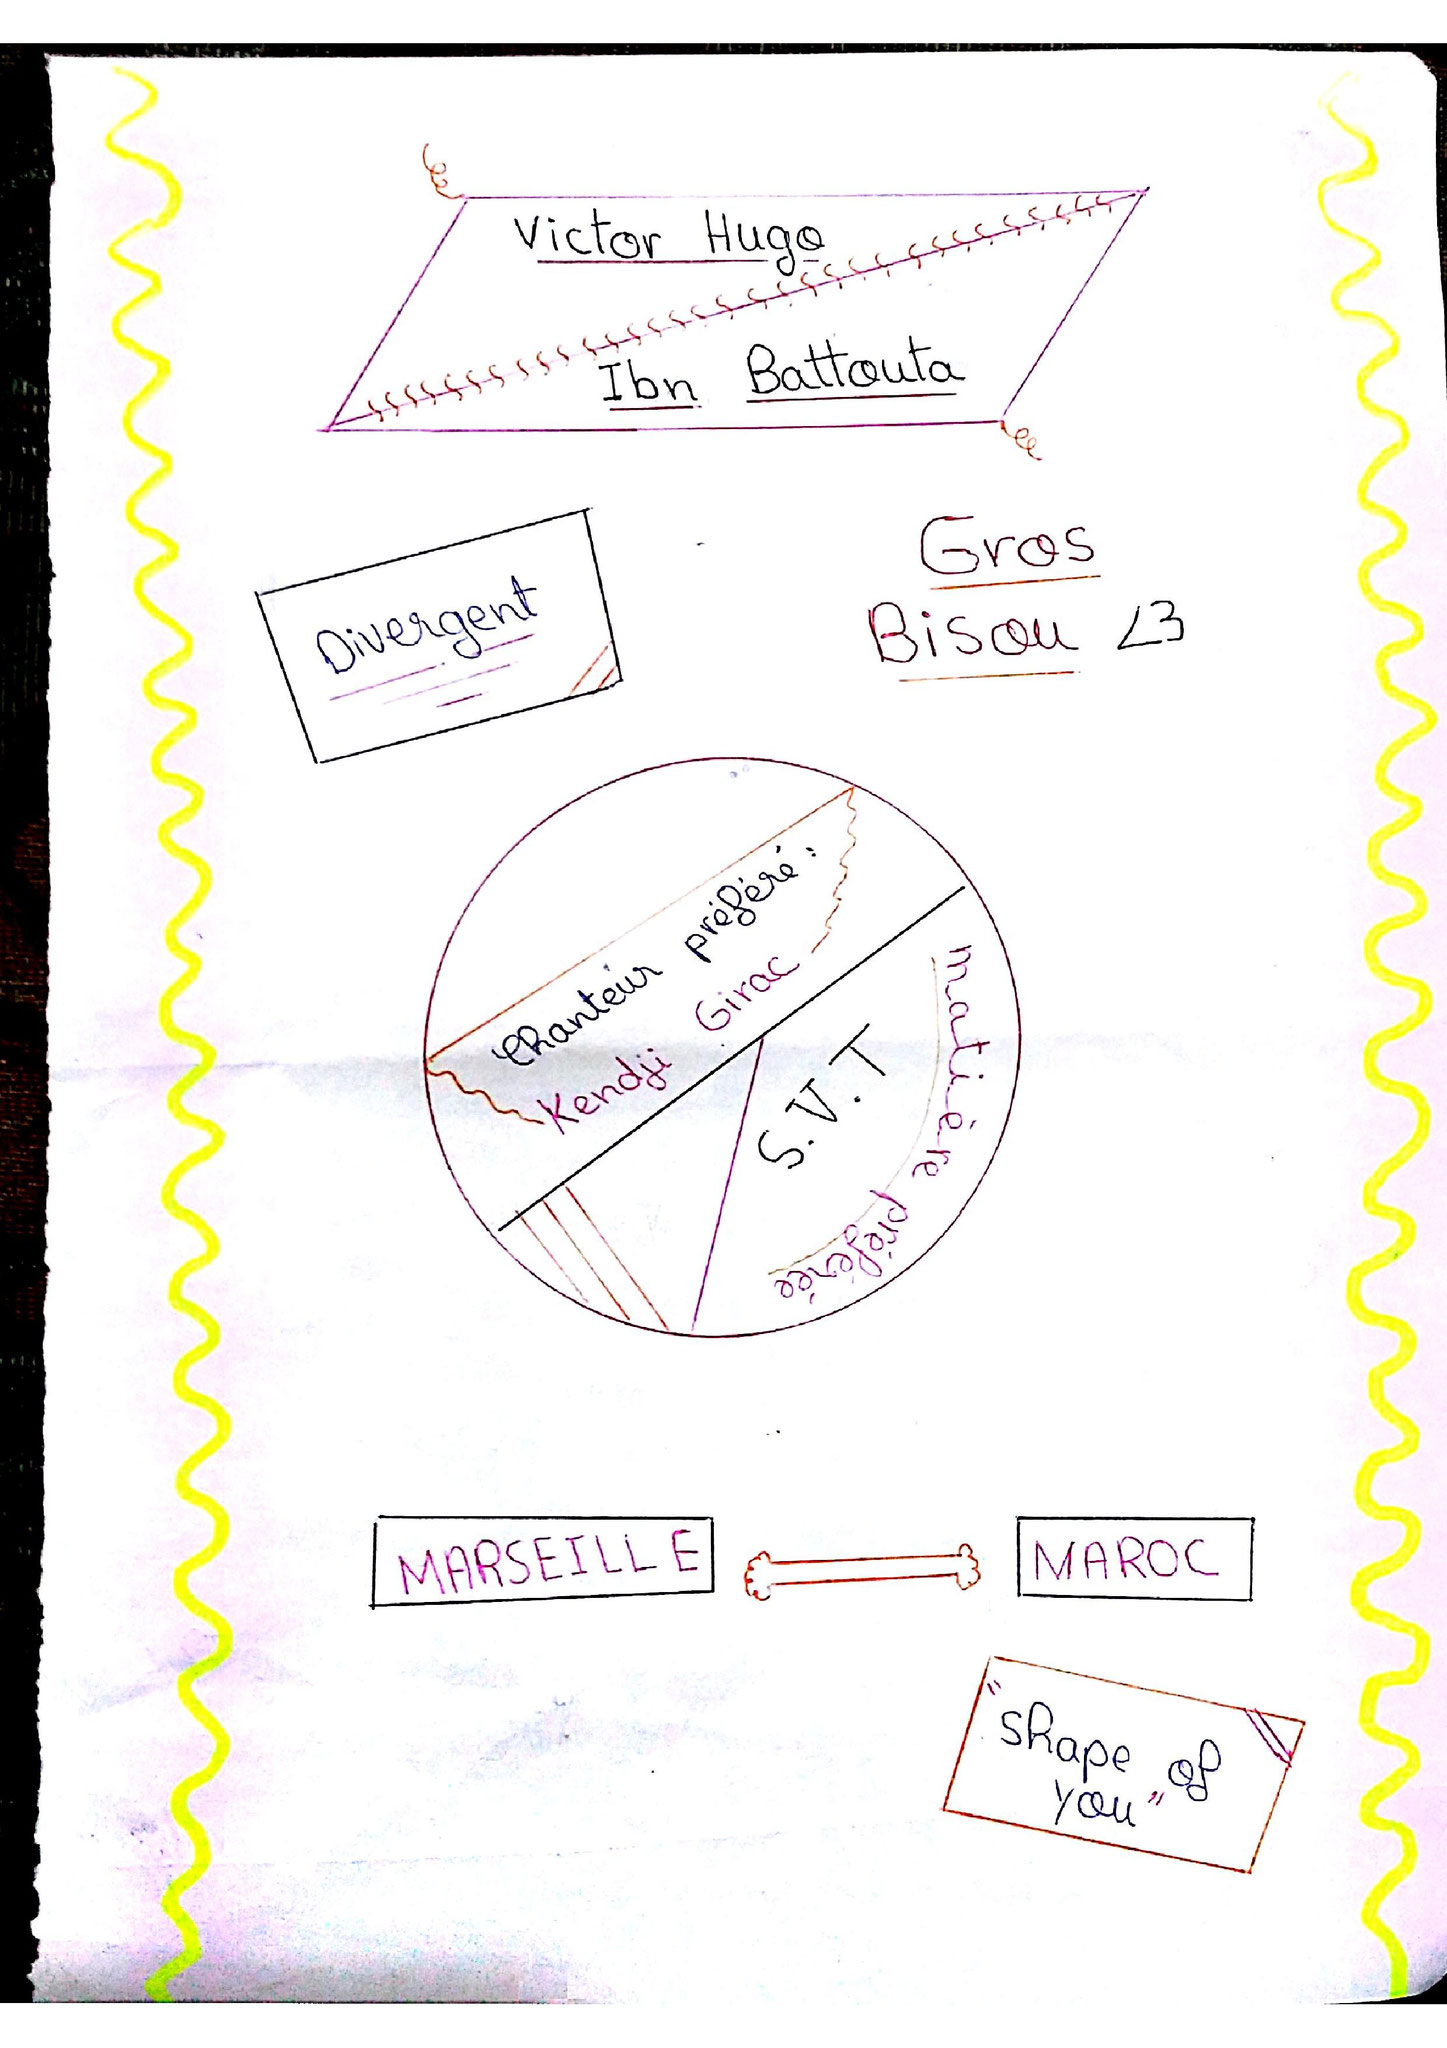 Victor Hugo
Ibn Battouta
Divergent
Gros
Bisou <3
Chanteur préféré :
Kendji Girac
S.V.T
matière préférée
MARSEILLE
MAROC
"shape of
you"